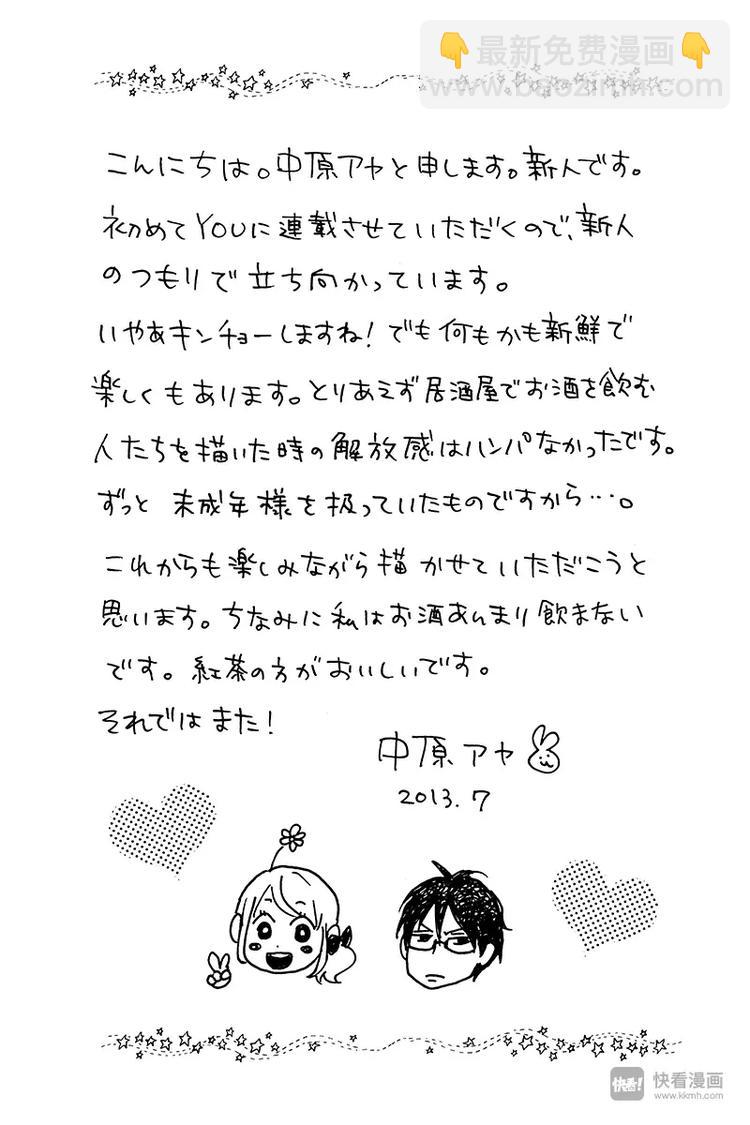 最新免费漫画
www.baozimh.com
こんにちは。中原アヤと申します。新人です。
初めてYOUに連載させていただくので、新人
のつもりで立ち向かっています。
いやあキンチョーしますね！でも何もかも新鮮で
楽しくもあります。とりあえず居酒屋でお酒を飲む
人たちを描いた時の解放感はハンパなかったです。
ずっと未成年様を扱っていたものですから…。
これからも楽しみながら描かせていただこうと
思います。ちなみに私はお酒あんまり飲まない
です。紅茶の方がおいしいです。
それではまた！
中原アヤ
2013.7
快看!
快看漫画
www.kkmh.com